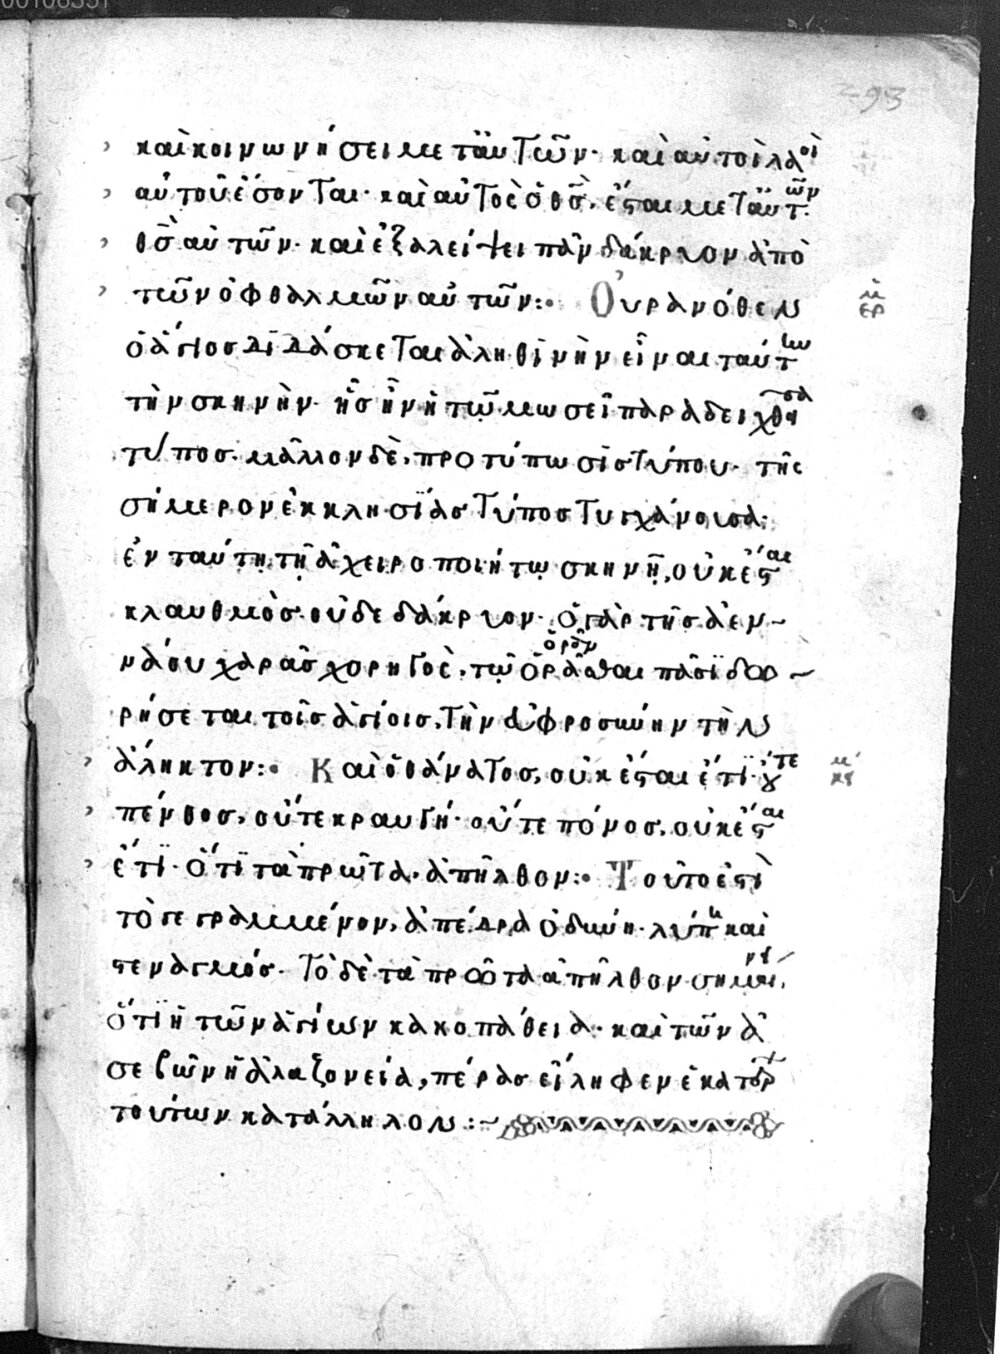 293
καὶ κοινωνήσει μετ' αὐτῶν· καὶ αὐτοὶ λαοὶ
αὐτοῦ ἔσονται· καὶ αὐτὸς ὁ θς̅, ἔσται μετ' αὐτῶν
θς̅ αὐτῶν· καὶ ἐξαλείψει πᾶν δάκρυον ἀπὸ
τῶν ὀφθαλμῶν αὐτῶν:· Οὐρανόθεν
ὁ ἅγιος διδάσκεται ἀληθινὴν εἶναι ταύτην
τὴν σκηνὴν· ἧς ἦν ἡ τῷ μωσεῖ παραδειχθεῖσα
τύπος. μᾶλλον δὲ, προτύπωσις τύπου· τῆς
σήμερον ἐκκλησίας τύπος τυγχάνουσα·
ἐν ταύτῃ τῇ ἀχειροποιήτῳ σκηνῇ, οὐκ ἔσται
κλαυθμὸς οὐδὲ δάκρυον· ὁ γὰρ τῆς ἀεν~
νάου χαρᾶς χορηγὸς, τῷ ὁρᾶσθαι πᾶσι δω~
ὁρᾶν
ρήσεται τοῖς ἁγίοις, τὴν εὐφροσύνην τὴν
ἄληκτον:· Καὶ ὁ θάνατος, οὐκ ἔσται ἔτι· οὔτε
πένθος, οὔτε κραυγή· οὔτε πόνος, οὐκ ἔσται
ἔτι· ὅτι τὰ πρῶτα ἀπῆλθον:· Τοῦτό ἐστὶ
τὸ γεγραμμένον, ἀπέδρα ὀδύνη· λύπη καὶ
στεναγμός· Τὸ δὲ τὰ πρῶτα ἀπῆλθον σημαίνει,
ὅτι ἡ τῶν ἁγίων κακοπάθεια· καὶ τῶν ἀ
σεβῶν ἡ ἀλαζονεία, πέρας εἴληφεν ἑκατέρῳ
τούτων κατάλληλον :~